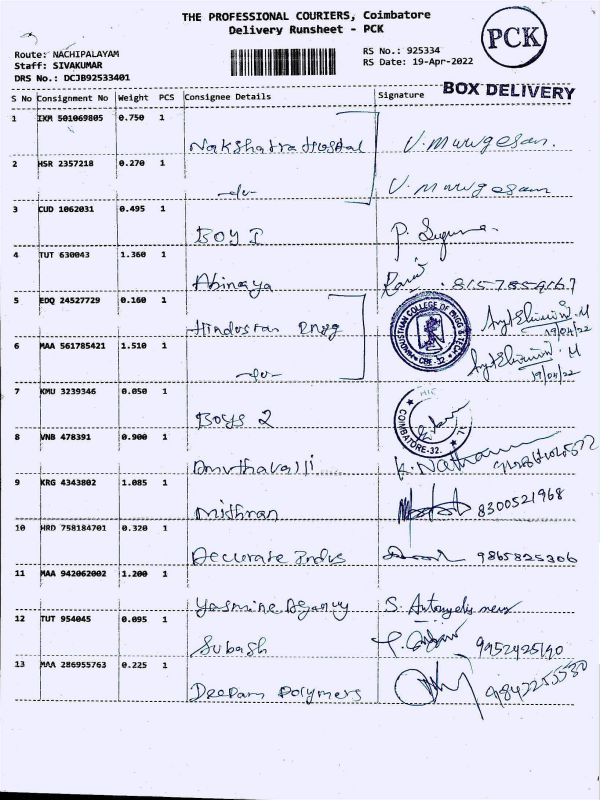 THE PROFESSIONAL COURIERS, Coimbatore
Delivery Runsheet - PCK
PCK
Route: NACHIPALAYAM
Staff: SIVAKUMAR
DRS No.: DCJB92533401
RS No.: 925334
RS Date: 19-Apr-2022
BOX DELIVERY
S No Consignment No Weight PCS Consignee Details Signature
1 IKM 501069805 0.750 1
Nakshatra Hospital V. Murugesan.
2 HSR 2357218 0.270 1
-do- V. Murugesan
3 CUD 1062031 0.495 1
BOY I P. Suguna
4 TUT 630043 1.360 1
Abinaya 8157859167
5 EDQ 24527729 0.160 1
Hindustan Engg
HINDUSTHAN COLLEGE OF ENGG & TECH CBE-32
19/04/22
6 MAA 561785421 1.510 1
-do- 19/04/22
7 KMU 3239346 0.050 1
Boys 2
COIMBATORE-32.
8 VNB 478391 0.900 1
Amuthavalli K. Nathan
9 KRG 4343802 1.085 1
Mithran 8300521968
10 HRD 758184701 0.320 1
Accurate Indus 9865825306
11 MAA 942062002 1.200 1
Yasmine Agency S.
12 TUT 954045 0.095 1
Subash 9952425190
13 MAA 286955763 0.225 1
Deepam Polymers 9842255580